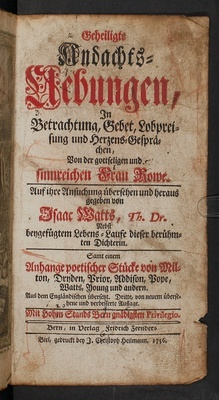 Geheiligte
Andachts-
Uebungen,
In
Betrachtung, Gebet, Lobprei-
sung und Herzens-Gesprä-
chen,
Von der gottseligen und
sinnreichen Frau Rowe.
Auf ihre Ansuchung übersehen und heraus
gegeben von
Isaac Watts, Th. Dr.
Nebst
beygefügtem Lebens-Laufe dieser berühm-
ten Dichterin.
Samt einem
Anhange poetischer Stücke von Mil-
ton, Dryden, Prior, Addison, Pope,
Watts, Young und andern.
Aus dem Engländischen übersetzt. Dritte, von neuem überse-
hene und verbesserte Auflage.
Mit Hohen Stands Bern gnädigstem Privilegio.
Bern, in Verlag Fridrich
Biel, gedruckt bey J. Christoph Heilmann, 1756.